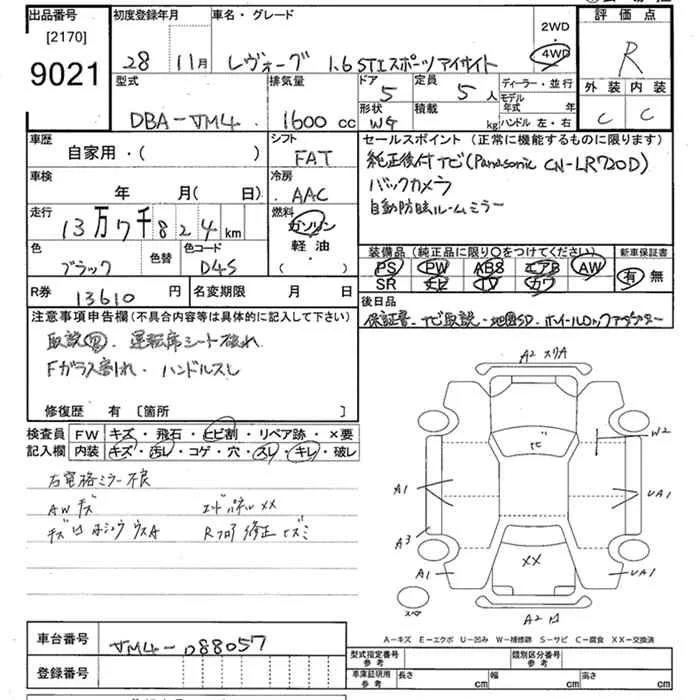 出品番号
[2170]
9021
初度登録年月
28年 11月
車名・グレード
レヴォーグ 1.6 STIスポーツアイサイト
2WD
・
4WD
評価点
R
外装 内装
C C
型式
DBA-VM4
排気量
1600 cc
ドア
5
定員
5人
形状
WG
積載
kg
ディーラー・並行
モデル年式 年
ハンドル 左・右
車歴
自家用・( )
シフト
FAT
車検
年 月( 日)
冷房
AAC
走行
13万7千824km
燃料
ガソリン
軽油・
( )
色
ブラック
色替
色コード
D4S
セールスポイント(正常に機能するものに限ります)
純正後付ナビ(Panasonic CN-LR720D)
バックカメラ
自動防眩ルームミラー
装備品(純正品に限り○をつけてください)
PS PW ABS エアB AW
SR ナビ TV カワ
新車保証書
有 無
R券 13610円
名変期限 月 日
後日品
保証書・ナビ取説・地図SD・ホイールロックアダプター
注意事項申告欄(不具合内容等は具体的に記入して下さい)
取説 運転席シート破れ
Fガラス割れ・ハンドルスレ
修復歴 有 [箇所 ]
検査員記入欄
FW キズ・飛石・ヒビ割・リペア跡・×要
内装 キズ・汚レ・コゲ・穴・スレ・キレ・破レ
右電格ミラー不良
AWキズ エンドパネルXX
キズ凹 ホシュウ ウスA Rフロア修正 ヒズミ
A2 スリA
ヒビ
W2
A1
UA1
A3
XX
A1
UA1
スペア
A2 凹
A-キズ E-エクボ U-凹み W-補修跡 S-サビ C-腐食 XX-交換済
車台番号 VM4-088057
登録番号
型式指定番号
参考
類別区分番号
参考
車庫証明用
参考
長さ cm
幅 cm
高さ cm